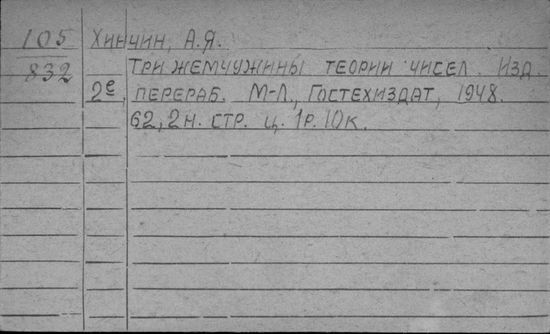 105 Хинчин, А.Я.
832 Три жемчужины теории чисел. Изд.
2е, перераб. М-Л., Гостехиздат, 1948.
62, 2н. стр. ц. 1р. 10к.